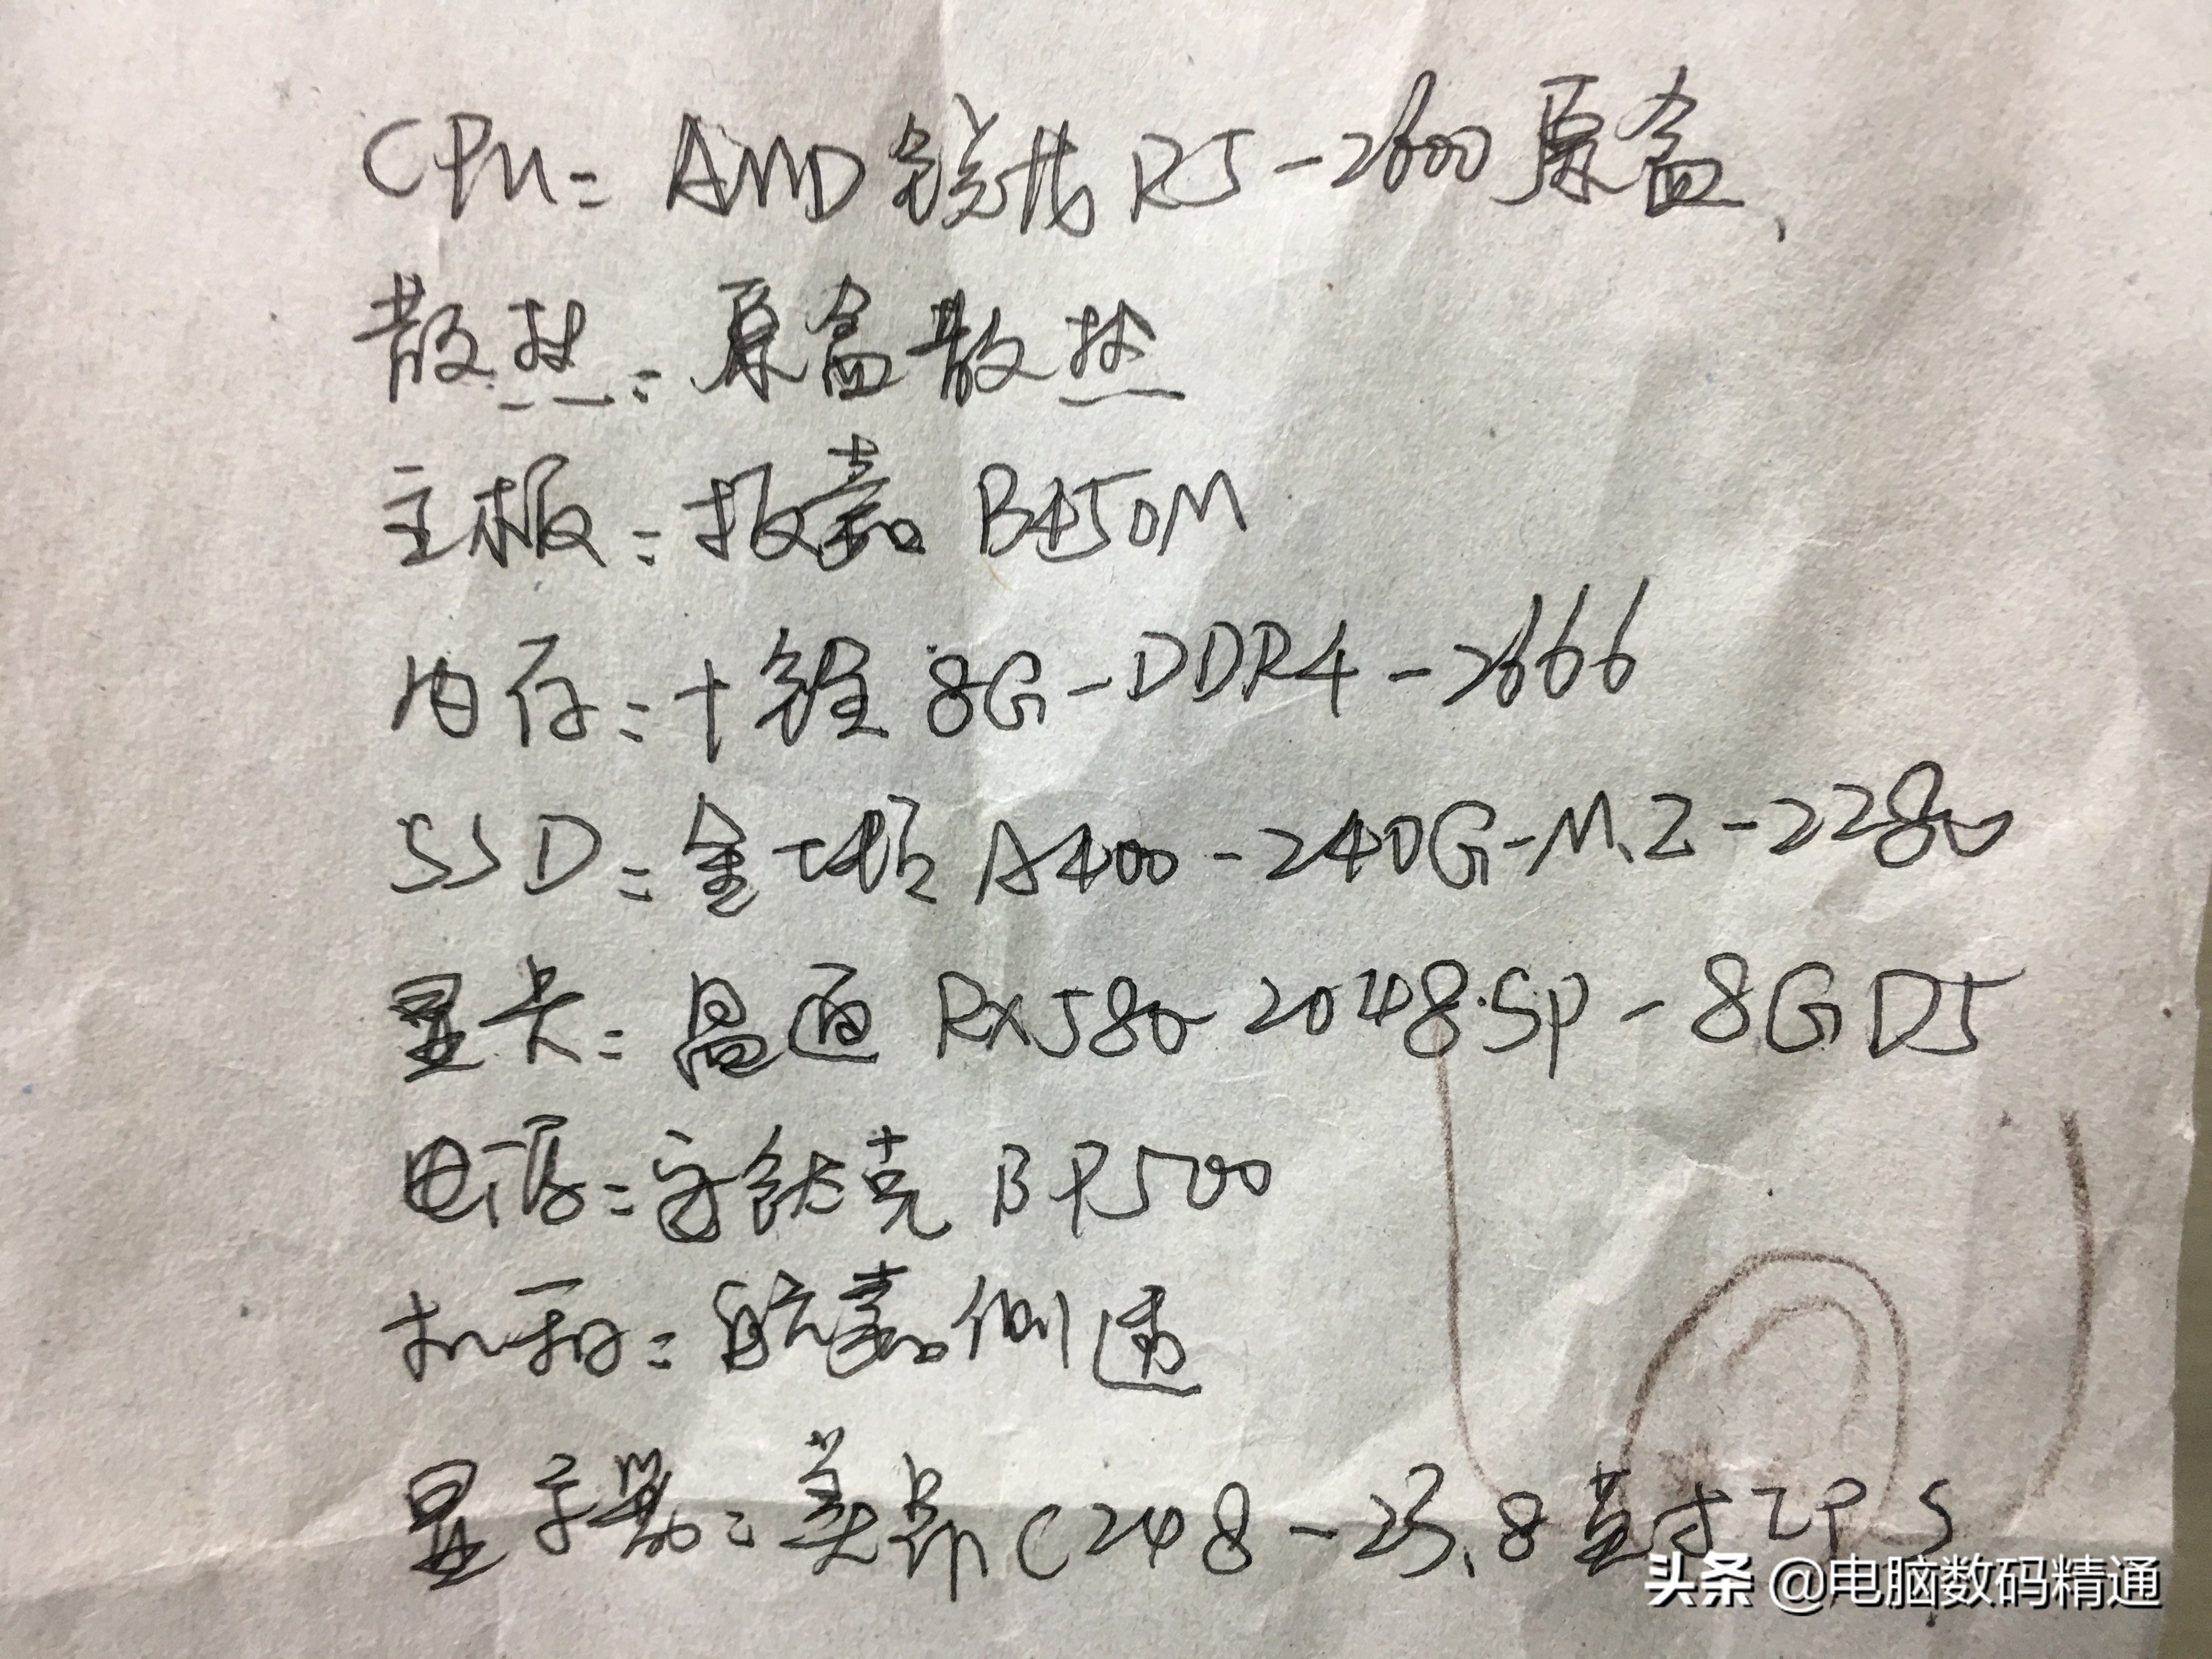 CPU: AMD锐龙R5-2600原盒、
散热:原盒散热
主板:技嘉 B450M
内存:十铨 8G-DDR4-2666
SSD:金士顿 A400-240G-M.2-2280
显卡:昌通 RX580 2048SP-8G D5
电源:安钛克 BP500
机箱:航嘉侧透
显示器:美帝 C248-23.8英寸IPS
头条 @电脑数码精通